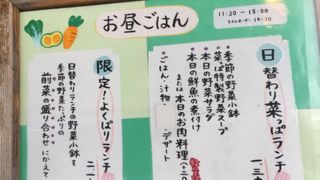 お昼ごはん
11:30〜15:00
ラストオーダー14:30
日替わり菜っぱランチ
季節の野菜小鉢
菜っぱ特製野菜スープ
本日の野菜サラダ
本日の鮮魚の煮付け
または本日のお肉料理
ごはん・汁物
・デザート
限定!よくばりランチ
日替わりランチの野菜小鉢を
季節の野菜たっぷりの
前菜の盛り合わせにかえて